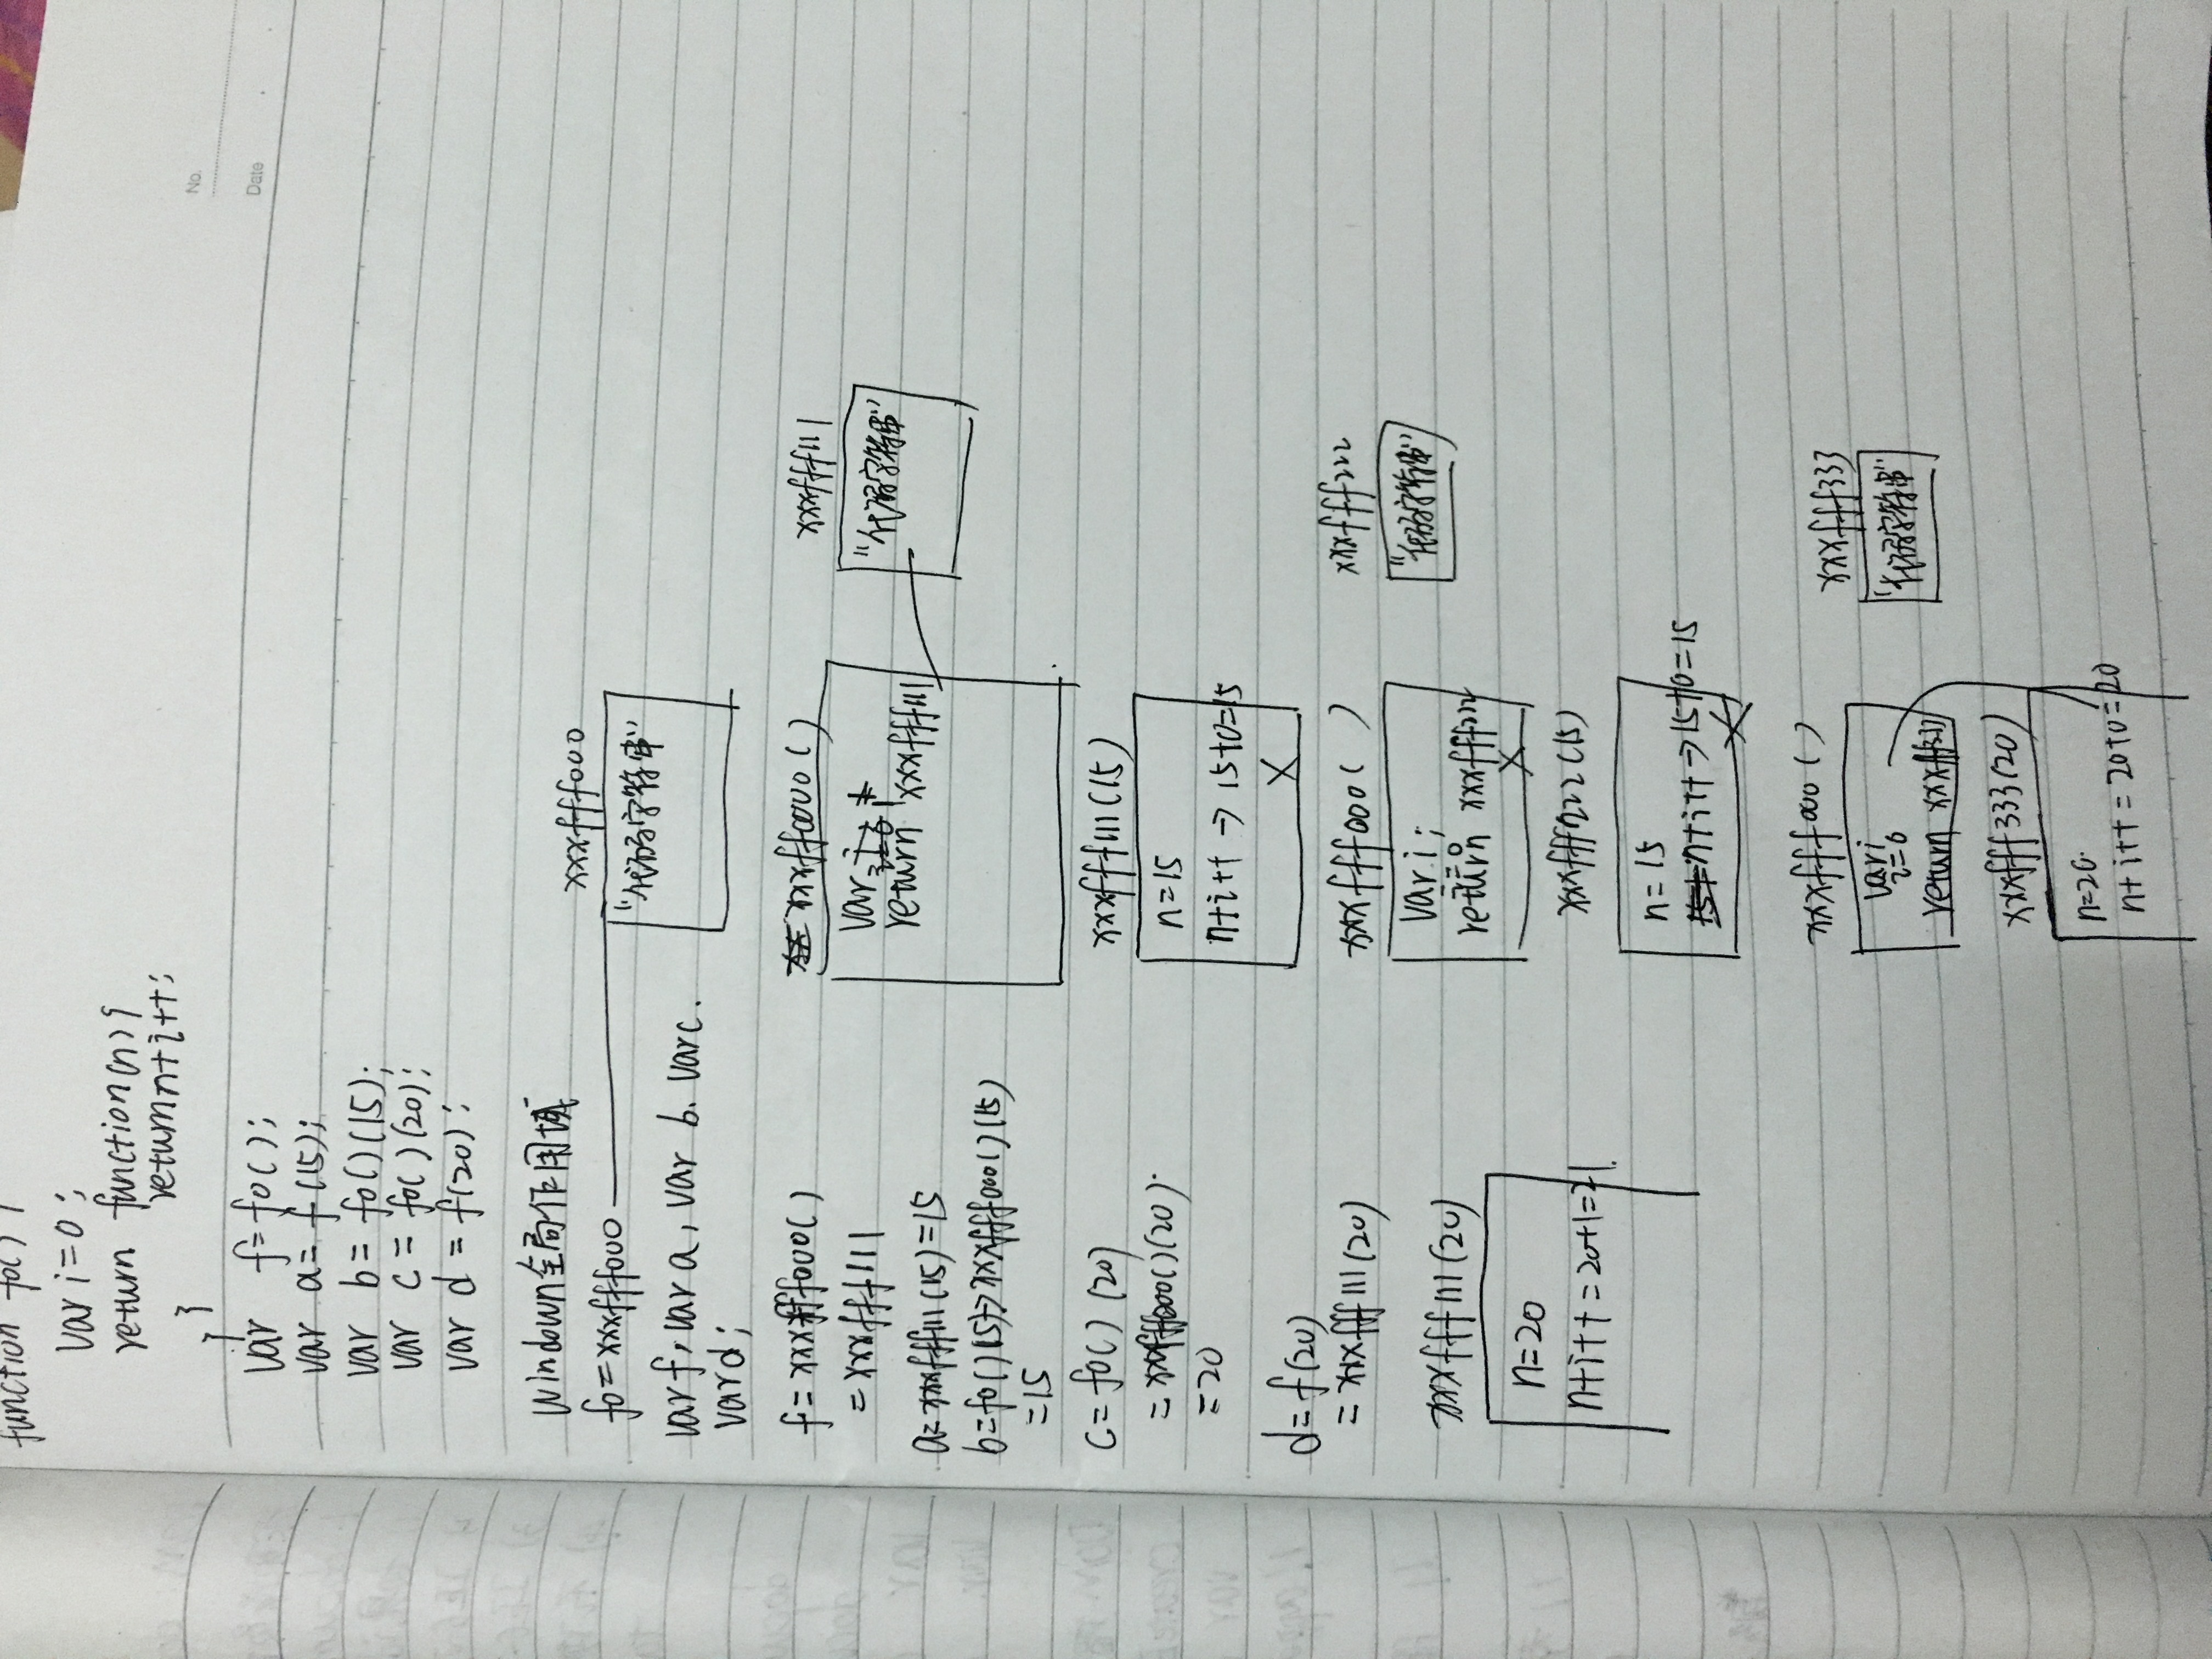 function fo() {
var i=0;
return function(n){
return n+i++;
}
}
var f=fo();
var a=f(15);
var b=fo()(15);
var c=fo()(20);
var d=f(20);
No.
Date
windown全局作用域
fo=xxxfff000
xxxfff000
"代码字符串"
var f, var a, var b. var c.
var d;
f=xxxfff000()
=xxxfff111
a=xxxfff111(15)=15
b=fo()(15)→xxxfff000()(15)
=15
c=fo()(20)
=xxxfff000()(20)
=20
d=f(20)
=xxxfff111(20)
xxxfff111(20)
n=20
n+i++=20+1=21.
xxxff0000()
var i;
return xxxfff111
xxxfff111
"代码字符串"
xxxfff111(15)
n=15
n+i++→15+0=15
xxxfff000()
var i;
i=0
return xxxfff222
xxxfff222
"代码字符串"
xxxfff222(15)
n=15
n+i++→15+0=15
xxxfff000()
var i
i=0
return xxxfff333
xxxfff333
"代码字符串"
xxxfff333(20)
n=20.
n+i++=20+0=20